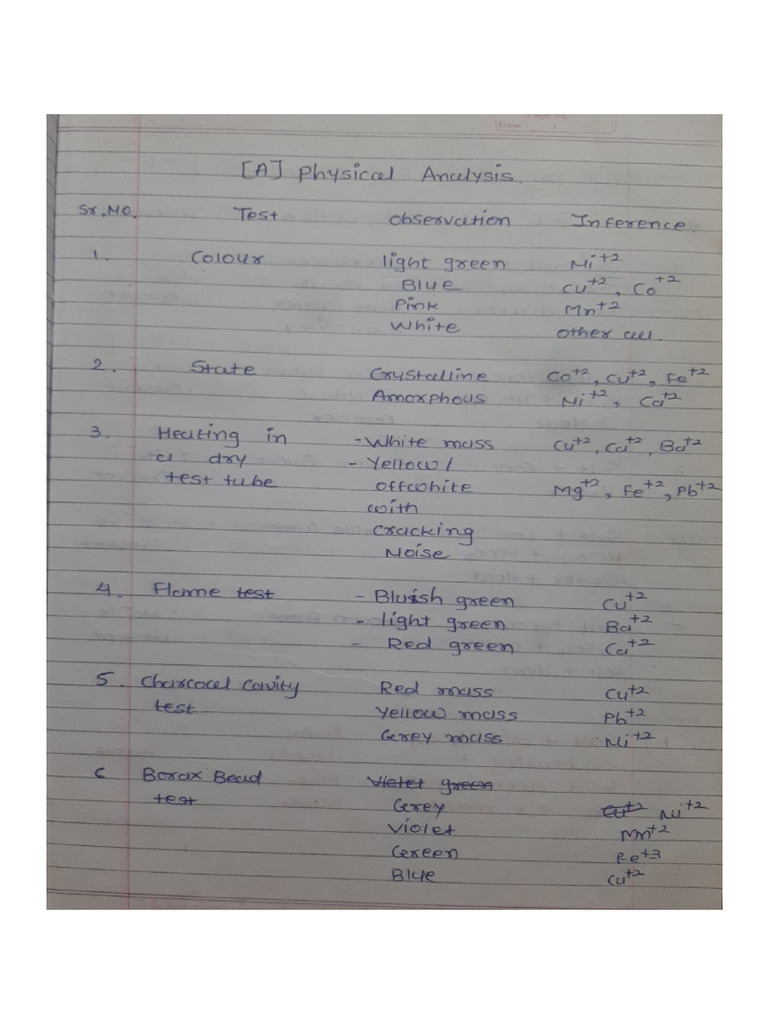 [A] Physical Analysis.
Sr.NO. Test Observation Inference.
1. Colour light green Ni+2
Blue Cu+2, Co+2
Pink Mn+2
White other all.
2. State Crystalline Co+2, Cu+2, Fe+2
Amorphous Ni+2, Ca+2
3. Heating in - White mass Cu+2, Ca+2, Ba+2
a dry - Yellow/
test tube offwhite Mg+2, Fe+2, Pb+2
with
cracking
Noise
4. Flame test - Bluish green Cu+2
- light green Ba+2
- Red green Ca+2
5. Charcoal Cavity Red mass Cu+2
test Yellow mass Pb+2
Grey mass Ni+2
6 Borax Bead Violet green
test Grey Cu+2 Ni+2
Violet Mn+2
Green Fe+3
Blue Cu+2